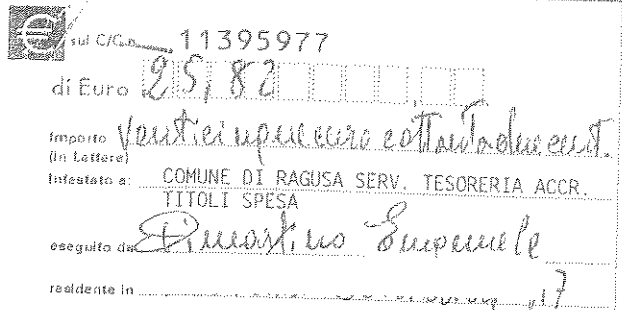 € sul C/C n. 11395977
di Euro 25,82
Importo Venticinque euro e ottantadue cent.
(in Lettere)
Intestato a: COMUNE DI RAGUSA SERV. TESORERIA ACCR.
TITOLI SPESA
eseguito da Dimartino Emanuele
residente in 17